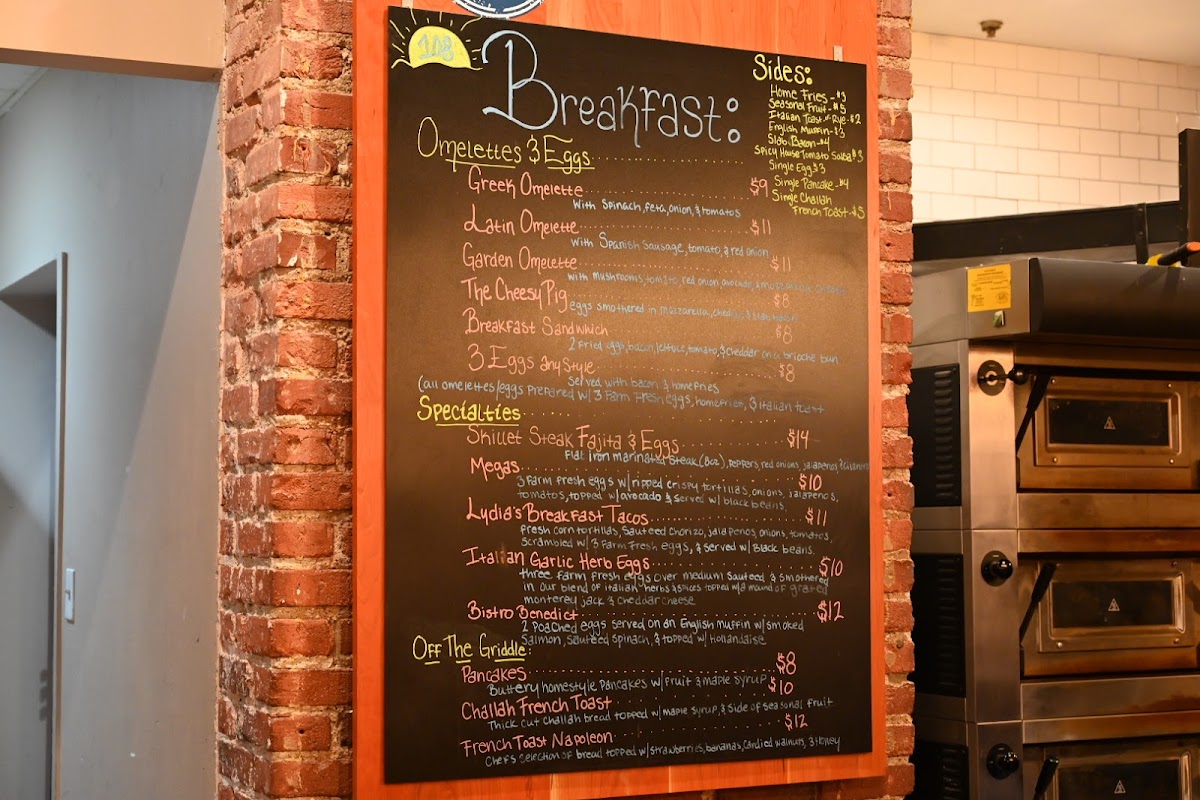 108
Breakfast:
Sides:
Home Fries - $3
Seasonal Fruit - $5
Italian Toast or Rye - $2
English Muffin - $3
Slab Bacon - $4
Spicy House Tomato Salsa $3
Single Egg $3
Single Pancake - $4
Single Challah
French Toast - $5
Omelettes & Eggs
Greek Omelette $9
with Spinach, feta, onion, & tomatos
Latin Omelette $11
with Spanish Sausage, tomato, & red onion
Garden Omelette $11
with mushrooms, tomato, red onion, avocado, &
The Cheesy Pig $8
eggs smothered in mozzarella, cheddar, & slab bacon
Breakfast Sandwhich $8
2 fried eggs, bacon, lettuce, tomato, & cheddar on a brioche bun
3 Eggs any Style $8
Served with bacon & homefries
(all omelettes/eggs prepared w/ 3 Farm Fresh eggs, homefries, & italian toast
Specialties
Skillet Steak Fajita & Eggs $14
Flat iron marinated steak (8oz), peppers, red onions, jalapenos, & cilantro
Megas $10
3 farm fresh eggs w/ ripped crispy tortillas, onions, jalapenos,
tomatos, topped w/ avocado & served w/ black beans.
Lydia's Breakfast Tacos $11
fresh corn tortillas, sauteed chorizo, jalapenos, onions, tomatos,
scrambled w/ 3 Farm Fresh eggs, & served w/ Black beans.
Italian Garlic Herb Eggs $10
three farm fresh eggs over medium sauteed & smothered
in our blend of italian herbs & spices topped w/ a mound of grated
monterey jack & cheddar cheese
Bistro Benedict $12
2 poached eggs served on an English muffin w/ smoked
Salmon, sauteed spinach, & topped w/ Hollandaise
Off The Griddle:
Pancakes $8
Buttery homestyle pancakes w/ fruit & maple syrup
Challah French Toast $10
Thick cut challah bread topped w/ maple syrup, & side of seasonal fruit
French Toast Napoleon $12
Chef's selection of bread topped w/ strawberries, bananas, candied walnuts, & honey